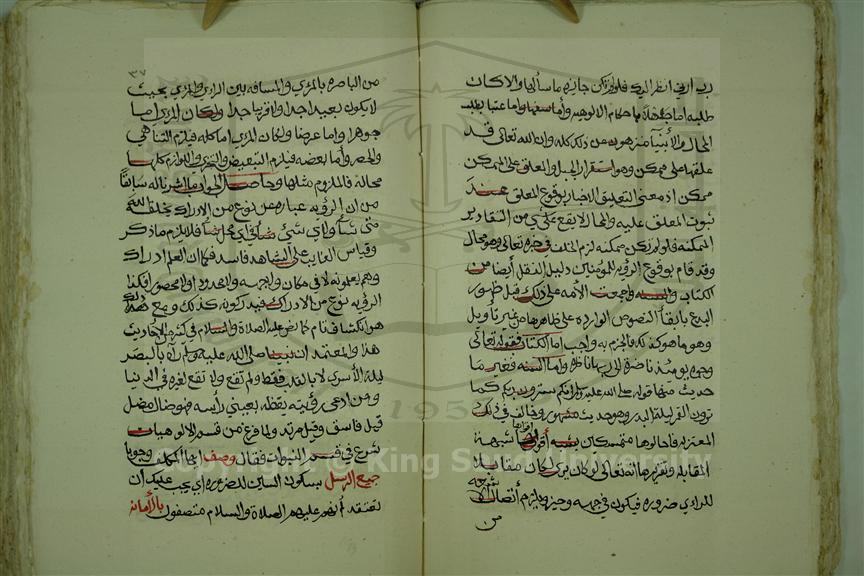 رب أرني انظر اليك فلو لم تكن جايزه ما سألها والا كان
طلبه اما جهلا باحكام الالوهيه واما سفها واما عبثا بطلب
المحال والأنبيآ منزهون من ذلك كله وان الله تعالى قد
علقها على ممكن وهو استقرار الجبل والمعلق على الممكن
ممكن اذ معنى التعليق الاخبار بوقوع المعلق عند
ثبوت المعلق عليه والمحال لا يقع على شي من التقادير
الممكنه فلو لم تكن ممكنه لزم الخلف في خبره تعالى وهو محال
وقد قام بوقوع الرؤيه للمؤمنين دليل النقل أيضا من
الكتاب والسنه واجمعت الأمه على ذلك قبل ظهور
البدع بابقآ النصوص الوارده على ظاهرها من غير تأويل
وهو ما هو كذلك فالجزم به واجب اما الكتاب فقوله تعالى
وجوه يومئذ ناضرة الى ربها ناظره واما السنه فغير ما
حديث منها قوله صلى الله عليه وسلم انكم سترون ربكم كما
ترون القمر ليلة البدر وهو حديث مشهور وخالف في ذلك
المعتزله فأحالوها متمسكان بشبه أقواها شبهة
المقابله وتقريرها انه تعالى لو كان يرى لكان مقابلا
للرائي ضروره فيكون في جهه وحيز ويلزم اتصال شعه
من
٣٧
من الباصره بالمرئي والمسافه بين الرائي والمرئي بحيث
لا يكون بعيدا جدا ولا قريبا جدا ولكان المرئي اما
جوهرا واما عرضا ولكان المرئي اما كله فيلزم التناهي
والحصر واما بعضه فيلزم التبعيض والتجزي واللوازم كلها
محالة فالملزوم مثلها وحاصل الجواب ما اشرنا له سابقا
من ان الرؤيه عبارة عن نوع من الإدراك يخلقه الله
متى شآ ولأي شئ شآ في أي محل شآ فلا يلزم ما ذكر
وقياس الغايب على الشاهد فاسد فكما ان العلم ادراك
وهم يعلمونه لا في مكان ولا جهه ولا محدود ولا محصور فكذا
الرؤيه نوع من الادراك فيدركونه كذلك ومع ذلك
هو انكشاف تام كما نص عليه الصلاة والسلام في كثير من الأحاديث
هذا والمعتمد ان نبينا صلى الله عليه وسلم رآه بالبصر
ليلة الأسرى لا بالقلب فقط ولم تقع ولا تقع لغيره في الدنيا
ومن ادعى رؤيته يقظه بعيني رأسه فهو ضال مضل
قيل فاسق وقيل مرتد ولما فرغ من قسم الالوهيات
شرع في قسم النبوات فقال وصف ايها المكلف وجوبا
جميع الرسل بسكون السين للضروره اي يجب عليك أن
تعتقد أنهم عليهم الصلاة والسلام متصفون بالأمانه
Copyright © King Saud University
195